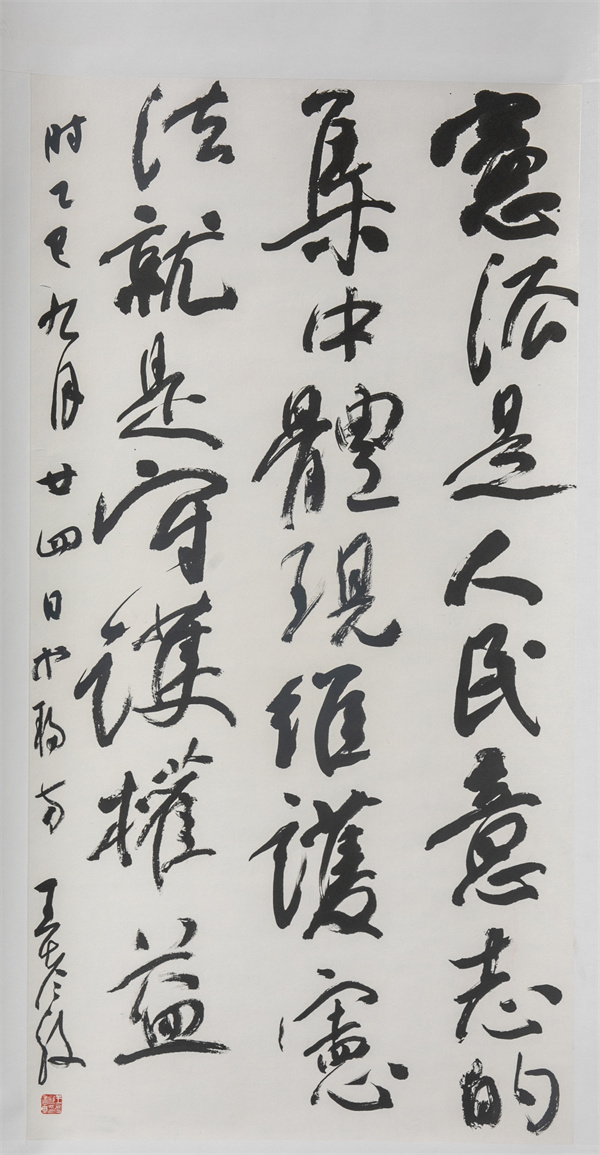 憲法是人民意志的
集中體現維護憲
法就是守護權益
时乙巳九月廿四日